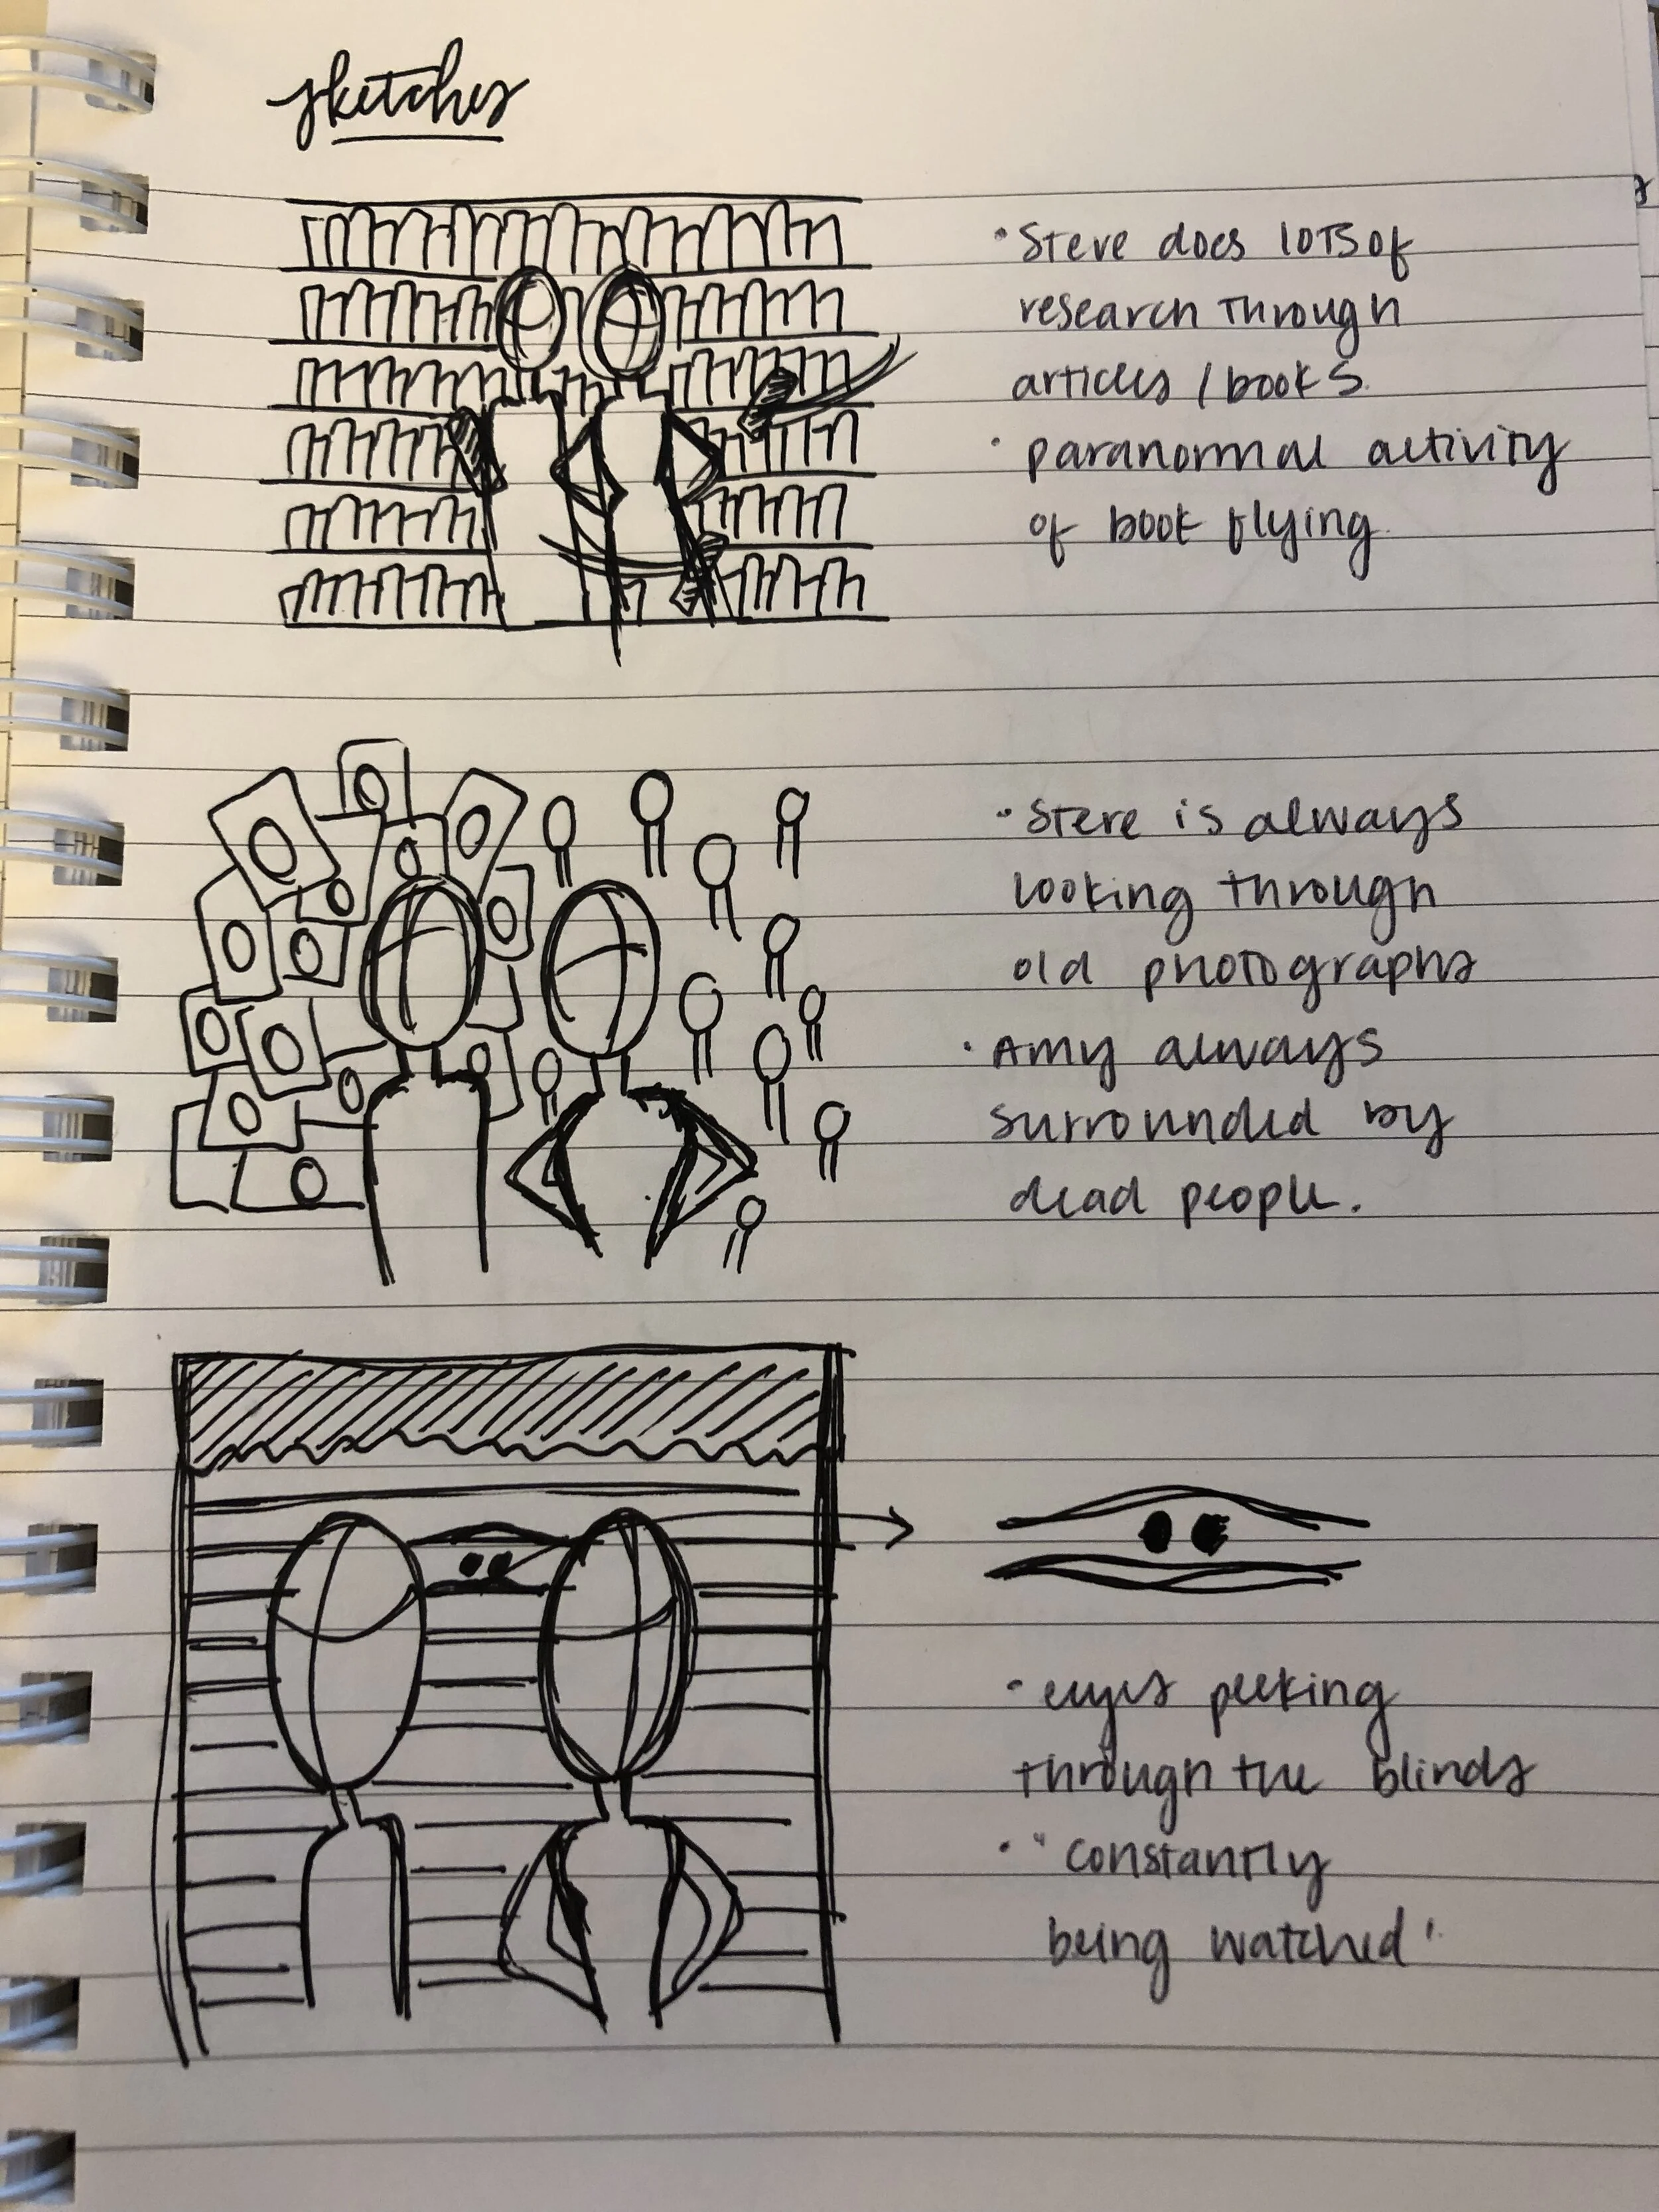 sketches
• Steve does lots of
research through
articles / books.
• paranormal activity
of book flying.
• Steve is always
looking through
old photographs
• Amy always
surrounded by
dead people.
• eyes peeking
through the blinds
• "constantly
being watched"